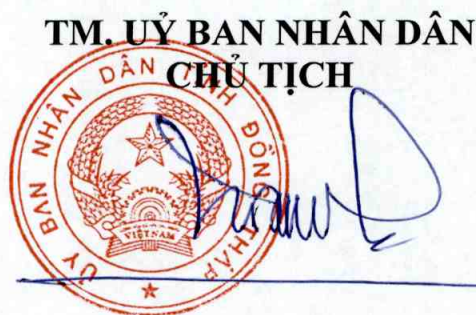 TM. UỶ BAN NHÂN DÂN
CHỦ TỊCH
ỦY BAN NHÂN DÂN TỈNH ĐỒNG THÁP
VIỆT NAM